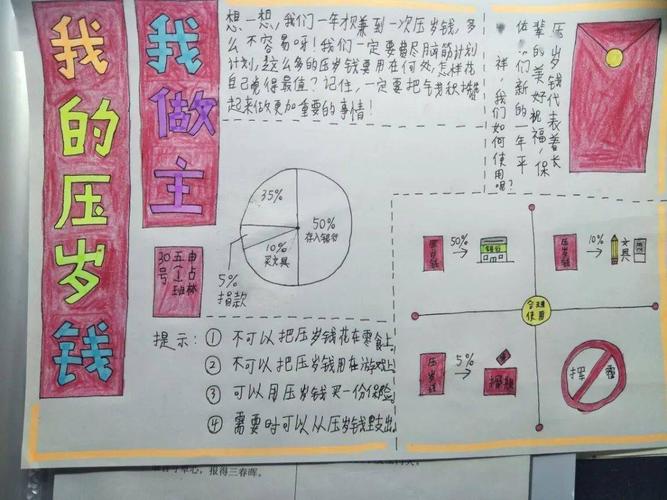 我的压岁钱
我做主
想一想,我们一年才赚到一次压岁钱,多
么不容易呀!我们一定要费尽用脑筋计划
计划,这么多的压岁钱要用在何处,怎样花
自己觉得最值?记住,一定要把每
起来做更加重要的事情!
压岁钱代表着长
辈的美好祝福,保
佑我们新的一年平
祥,我们如何使用呢?
35%
50%
存入银行
10%
买文具
5%
捐款
五(1)班
30号
提示:① 不可以把压岁钱花在零食上
② 不可以把压岁钱用在游戏上
③ 可以用压岁钱买一份保险
④ 需要时可以从压岁钱里支出
压岁钱 50% 银行
压岁钱 10% 文具
使用
压岁钱 5% 捐款
挥霍
报得三春晖。